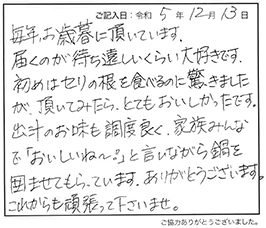 ご記入日：令和 5 年 12 月 13 日
毎年、お歳暮に頂いています。
届くのが待ち遠しいくらい大好きです。
初めはセリの根を食べるのに驚きました
が、頂いてみたら、とてもおいしかったです。
出汁のお味も調度良く、家族みんな
で「おいしいね〜。」と言いながら鍋を
囲ませてもらっています。ありがとうございます。
これからも頑張って下さいませ。
ご協力ありがとうございました。